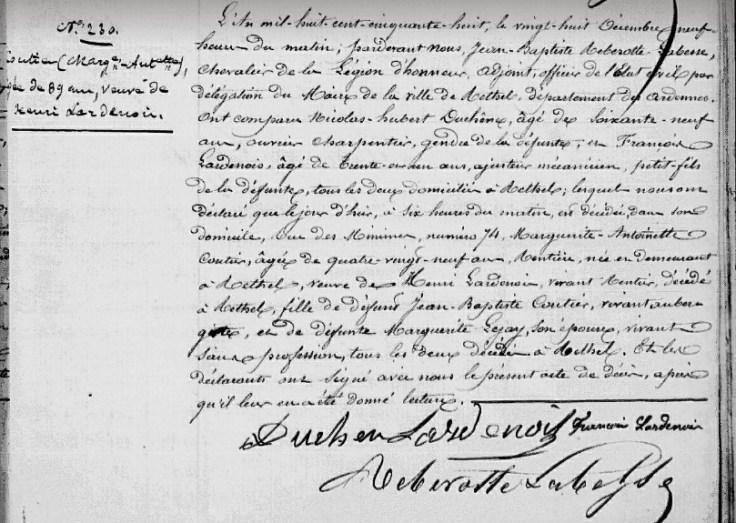 N.º 230.
Coutier (Marg.te-Ant.ette),
âgée de 89 ans, veuve de
Henri Lardenois.
L'An mil-huit-cent-cinquante-huit, le vingt-huit Décembre, neuf
heures du matin; pardevant Nous, Jean-Baptiste Reberotte-Labesse,
Chevalier de la Légion d'honneur, adjoint, officier de l'État civil par
délégation du Maire de la ville de Rethel, département des Ardennes.
Ont comparu Nicolas-hubert Duchêne, âgé de soixante-neuf
ans, ouvrier charpentier, gendre de la défunte; et François
Lardenois, âgé de trente-et-un ans, ajusteur mécanicien, petit-fils
de la défunte, tous les deux domiciliés à Rethel; lesquels nous ont
déclaré que le jour d'hui, à six heures du matin, est décédée, dans son
domicile, rue des Minimes, numéro 74, Marguerite-Antoinette
Coutier, âgée de quatre-vingt-neuf ans, Rentière, née et demeurant
à Rethel, veuve de Henri Lardenois, vivant Rentier, décédé
à Rethel, fille de défunts Jean-Baptiste Coutier, vivant auber-
giste, et de défunte Marguerite Lejay, son épouse, vivant
sans profession, tous les deux décédés à Rethel. Et les
déclarants ont signé avec nous le présent acte de décès, après
qu'il leur en a été donné lecture.
Duchen Lardenois François Lardenois
Reberotte Labesse